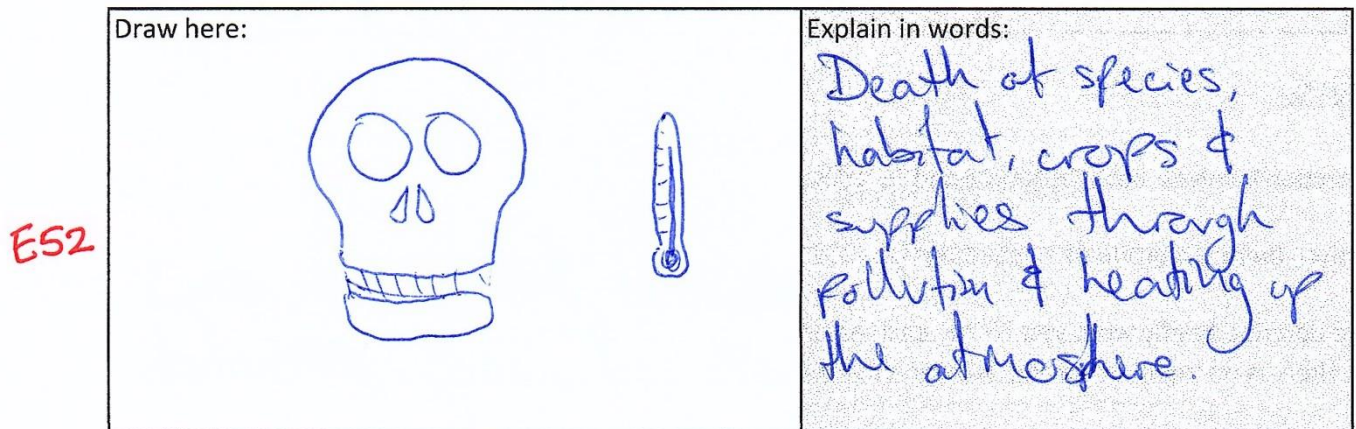 Draw here:
Explain in words:
Death of species,
habitat, crops &
supplies through
pollution & heating up
the atmosphere.
E52